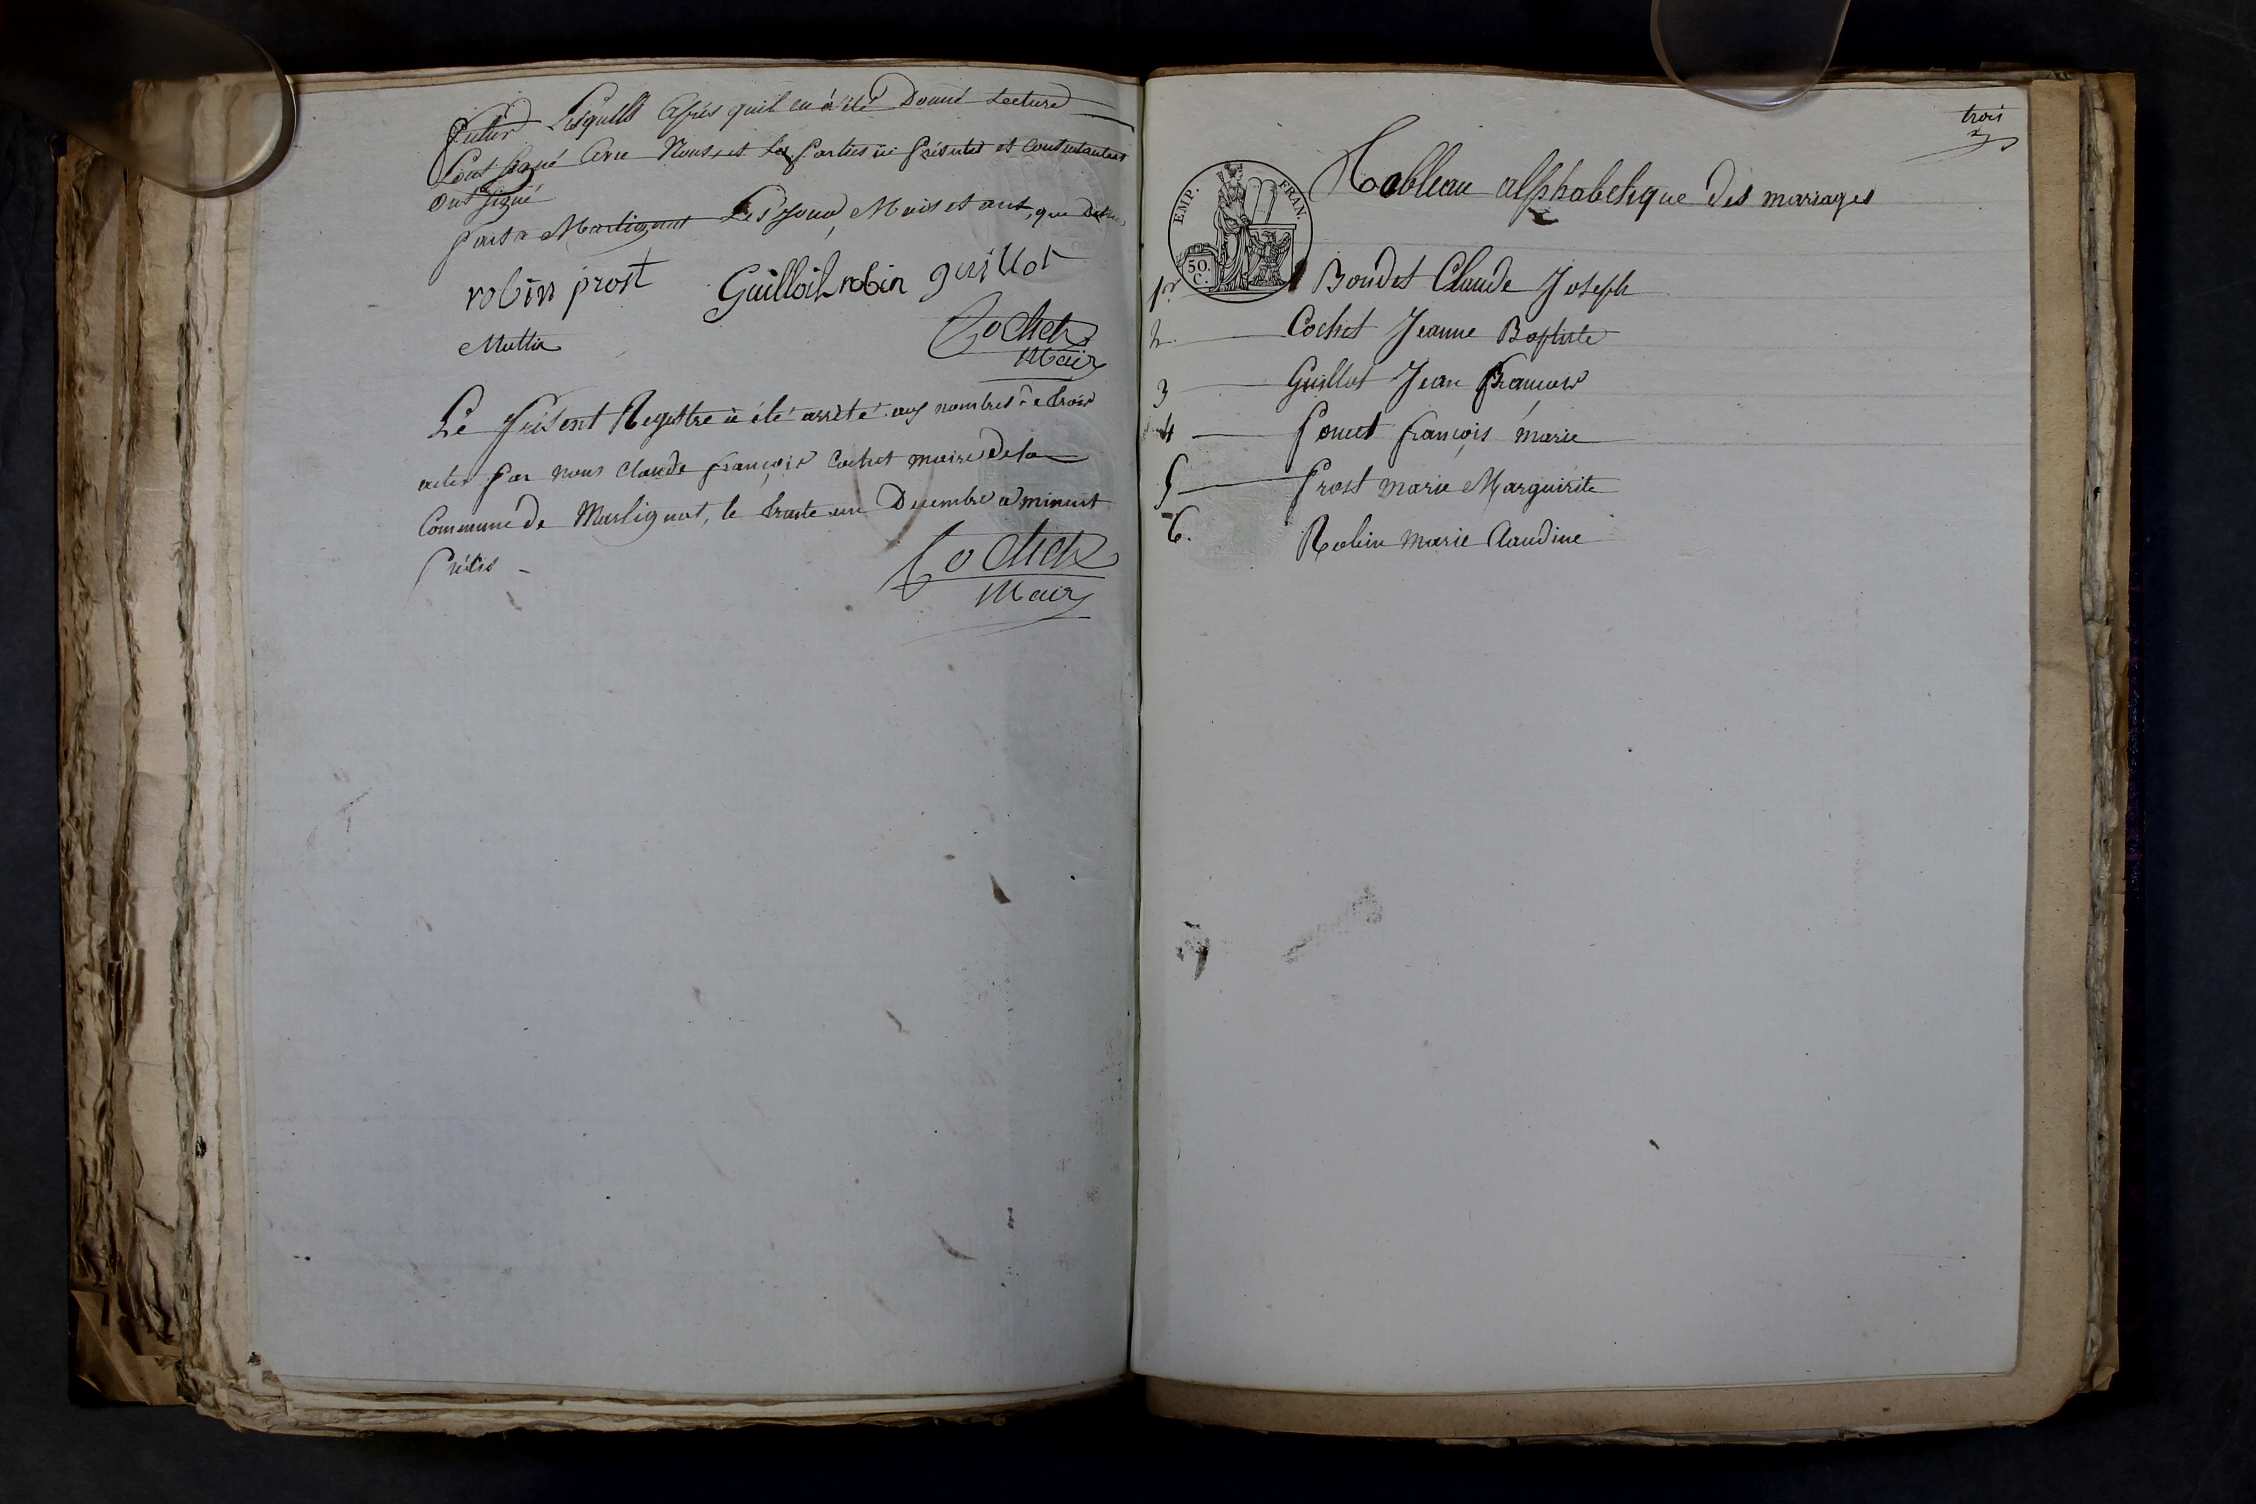 futur Lesquels Après quil en à été Donné Lecture
L'ont signé Avec Nous, et Les parties ici présentes et Consentantes
ont signé
fait a Martignat Les Jour, Mois et ans, que
robin prost Guilloit robin guillot
Cochet
Maire
Le présent Registre à été arrêté au nombres de trois
actes par nous Claude françois Cochet maire de la
Commune de Martignat, le trente un Decembre a minuit
précis -
Cochet
Maire
trois
Tableau alphabetique des mariages
EMP. FRAN.
50. C.
1er Boudet Claude Joseph
2. Cochet Jeanne Baptiste
3 Guillot Jean françois
4 poncet françois marie
5 prost marie Marguirite
6. Robin marie Claudine